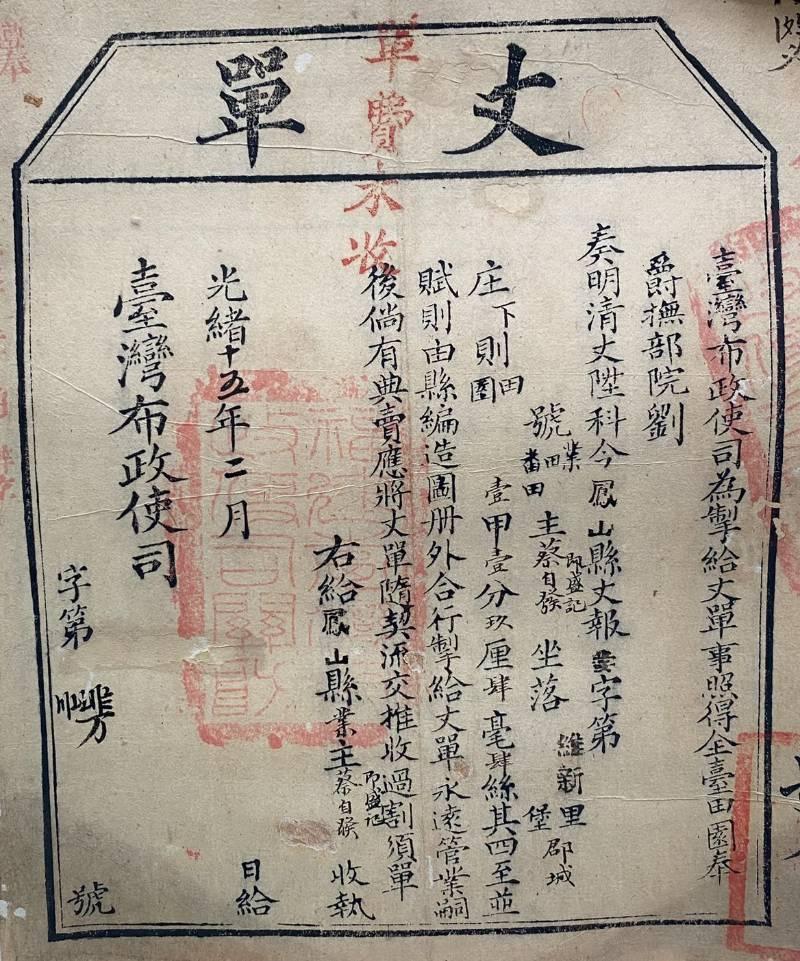 丈單
單費未收
臺灣布政使司為掣給丈單事照得全臺田園奉
爵撫部院劉
奏明清丈陞科今鳳山縣丈報字第
號業田番田主蔡自發即盛記坐落維新里堡郡城
庄下則田園壹甲壹分玖厘肆毫肆絲其四至並
賦則由縣編造圖册外合行掣給丈單永遠管業嗣
後倘有典賣應將丈單隨契流交推收過割須單
右給鳳山縣業主蔡自發即盛記收執
光緒十五年二月日給
臺灣布政使司
字第號